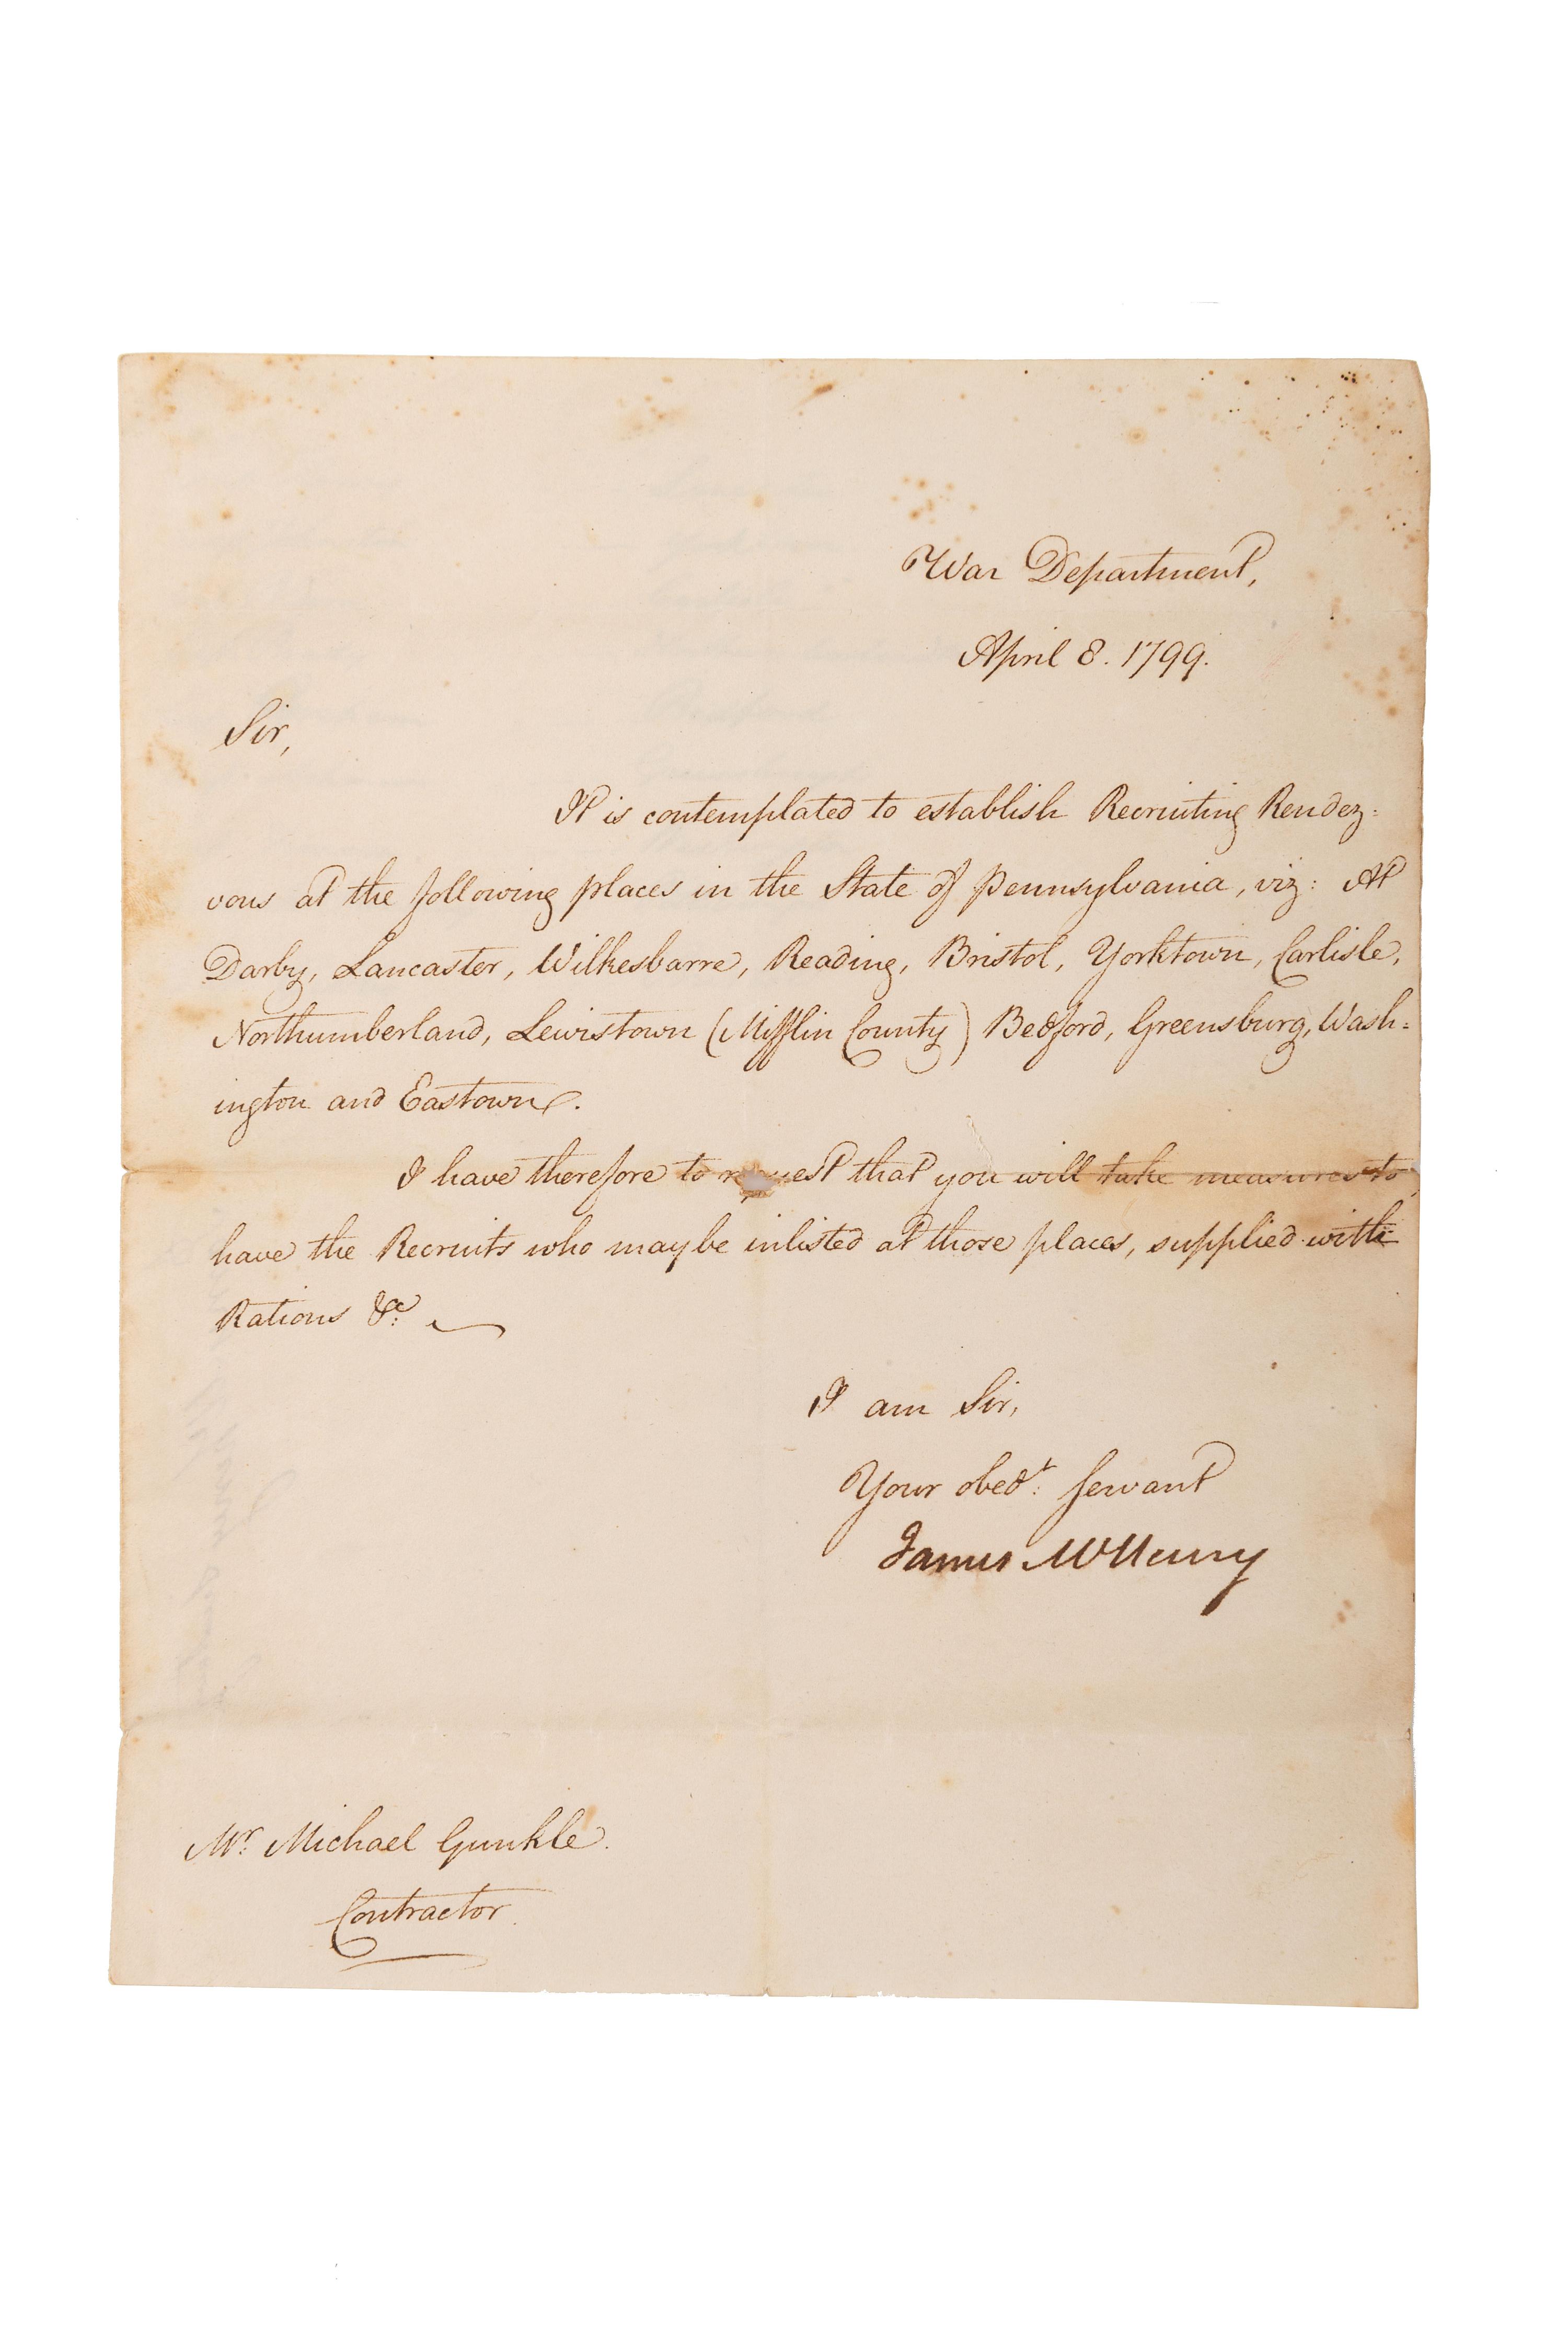 War Department,
April 8. 1799.
Sir,
It is contemplated to establish Recruiting Rendez=
vous at the following places in the State of Pennsylvania, viz: At
Darby, Lancaster, Wilkesbarre, Reading, Bristol, Yorktown, Carlisle,
Northumberland, Lewistown (Mifflin County) Bedford, Greensburg, Wash=
ington and Eastown.
I have therefore to request that you will take measures to
have the Recruits who may be inlisted at those places, supplied with
Rations &c.
I am Sir,
Your obedt. servant
James McHenry
Mr. Michael Gunkle.
Contractor.